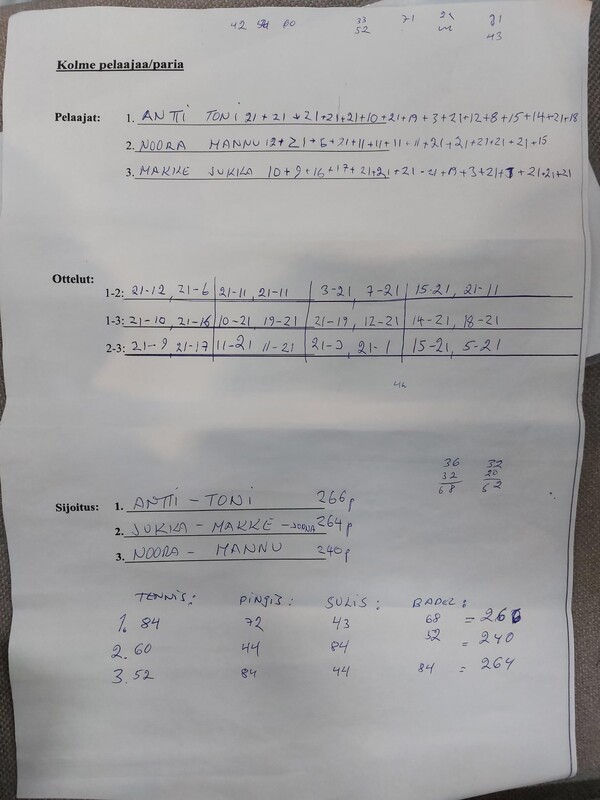 42 54 80 33 71 21 71
52 43
Kolme pelaajaa/paria
Pelaajat: 1. ANTTI TONI 21+21+21+21+21+10+21+19+3+21+12+8+15+14+21+18
2. NOORA MANNU 12+21+6+21+11+11+11+11+21+21+21+21+21+15
3. MAKKE JUKKA 10+9+16+17+21+21+21-21+19+3+21+ +21+21+21
Ottelut:
1-2: 21-12, 21-6 21-11, 21-11 3-21, 7-21 15-21, 21-11
1-3: 21-10, 21-16 10-21, 19-21 21-19, 12-21 14-21, 18-21
2-3: 21-9, 21-17 11-21 11-21 21-3, 21-1 15-21, 5-21
44
36 32
32 20
68 52
Sijoitus: 1. ANTTI - TONI 266p
2. JUKKA - MAKKE - JOONA 264p
3. NOORA - MANNU 240p
TENNIS: PINGIS: SULIS: BADEL:
1. 84 72 43 68 = 266
2. 60 44 84 52 = 240
3. 52 84 44 84 = 264